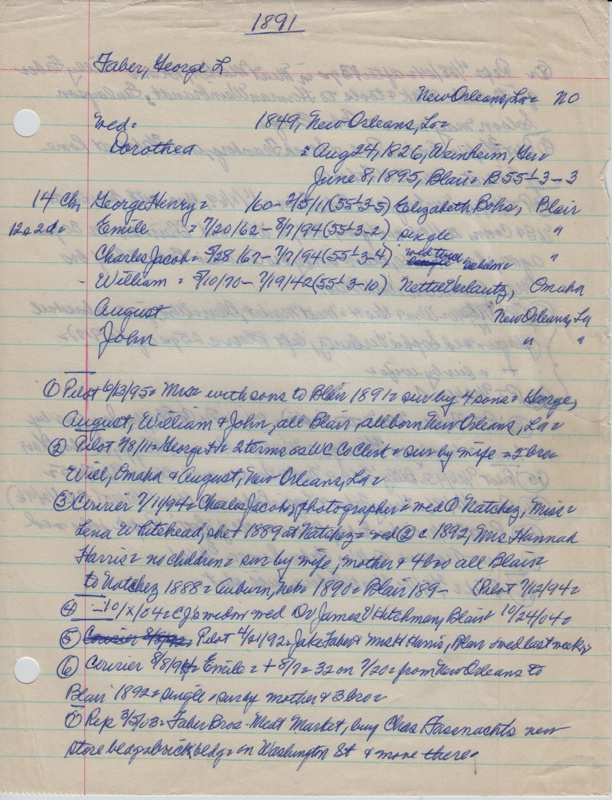 1891
Faber, George L
New Orleans, La = NO
med = 1849, New Orleans, La =
Dorothea = Aug 24, 1826, Weinheim, Ger =
June 8, 1895, Blair = B 55½-3-3
14 Ch, George Henry = 160 - 2/5/11 (55½-3-5) Elizabeth Bohs, Blair
12 a 2d = Emile = 7/20/62 - 8/7/94 (55½-3-2) single "
Charles Jacob = 5/28/67 - 7/7/94 (55½-3-4) "
- William = 5/10/70 - 7/19/42 (55½-3-10) Nettie Omaha
August New Orleans, La
John " "
① Pilot 6/13/95 = Mrs = with sons to Blair 1891 = sur by 4 sons = George,
August, William & John, all Blair, all born New Orleans, La =
② Pilot 2/8/11 = George H = 2 terms as WC Co Clerk = sur by wife = 2 bro =
Will, Omaha & August, New Orleans, La =
③ Courier 7/11/94 = Charles Jacob, photographer = med ① Natchez, Miss =
Lena Whitehead, she + 1889 at Natchez = med ② c 1892, Mrs Hannah
Harris = no children = sur by wife, mother & 4 bro all Blair =
to Natchez 1888 = Auburn, Nebr 1890 = Blair 189- (Pilot 7/12/94 =
④ - 10/x/04 = CJ's widow med Dr James V Hitchman, Blair 10/24/04 =
⑤ Pilot 4/21/92, Jake Faber & Mrs H Harris, Blair = med last week,
⑥ Courier 8/8/94 = Emile = + 8/7 = 32 on 7/20 = from New Orleans to
Blair 1892 = single = sur by mother & 3 bro =
⑦ Rep 3/5/03 = Faber Bros Meat Market, buy Chas Fasenachts new
store bldg = brick bldg = on Washington St & move there =